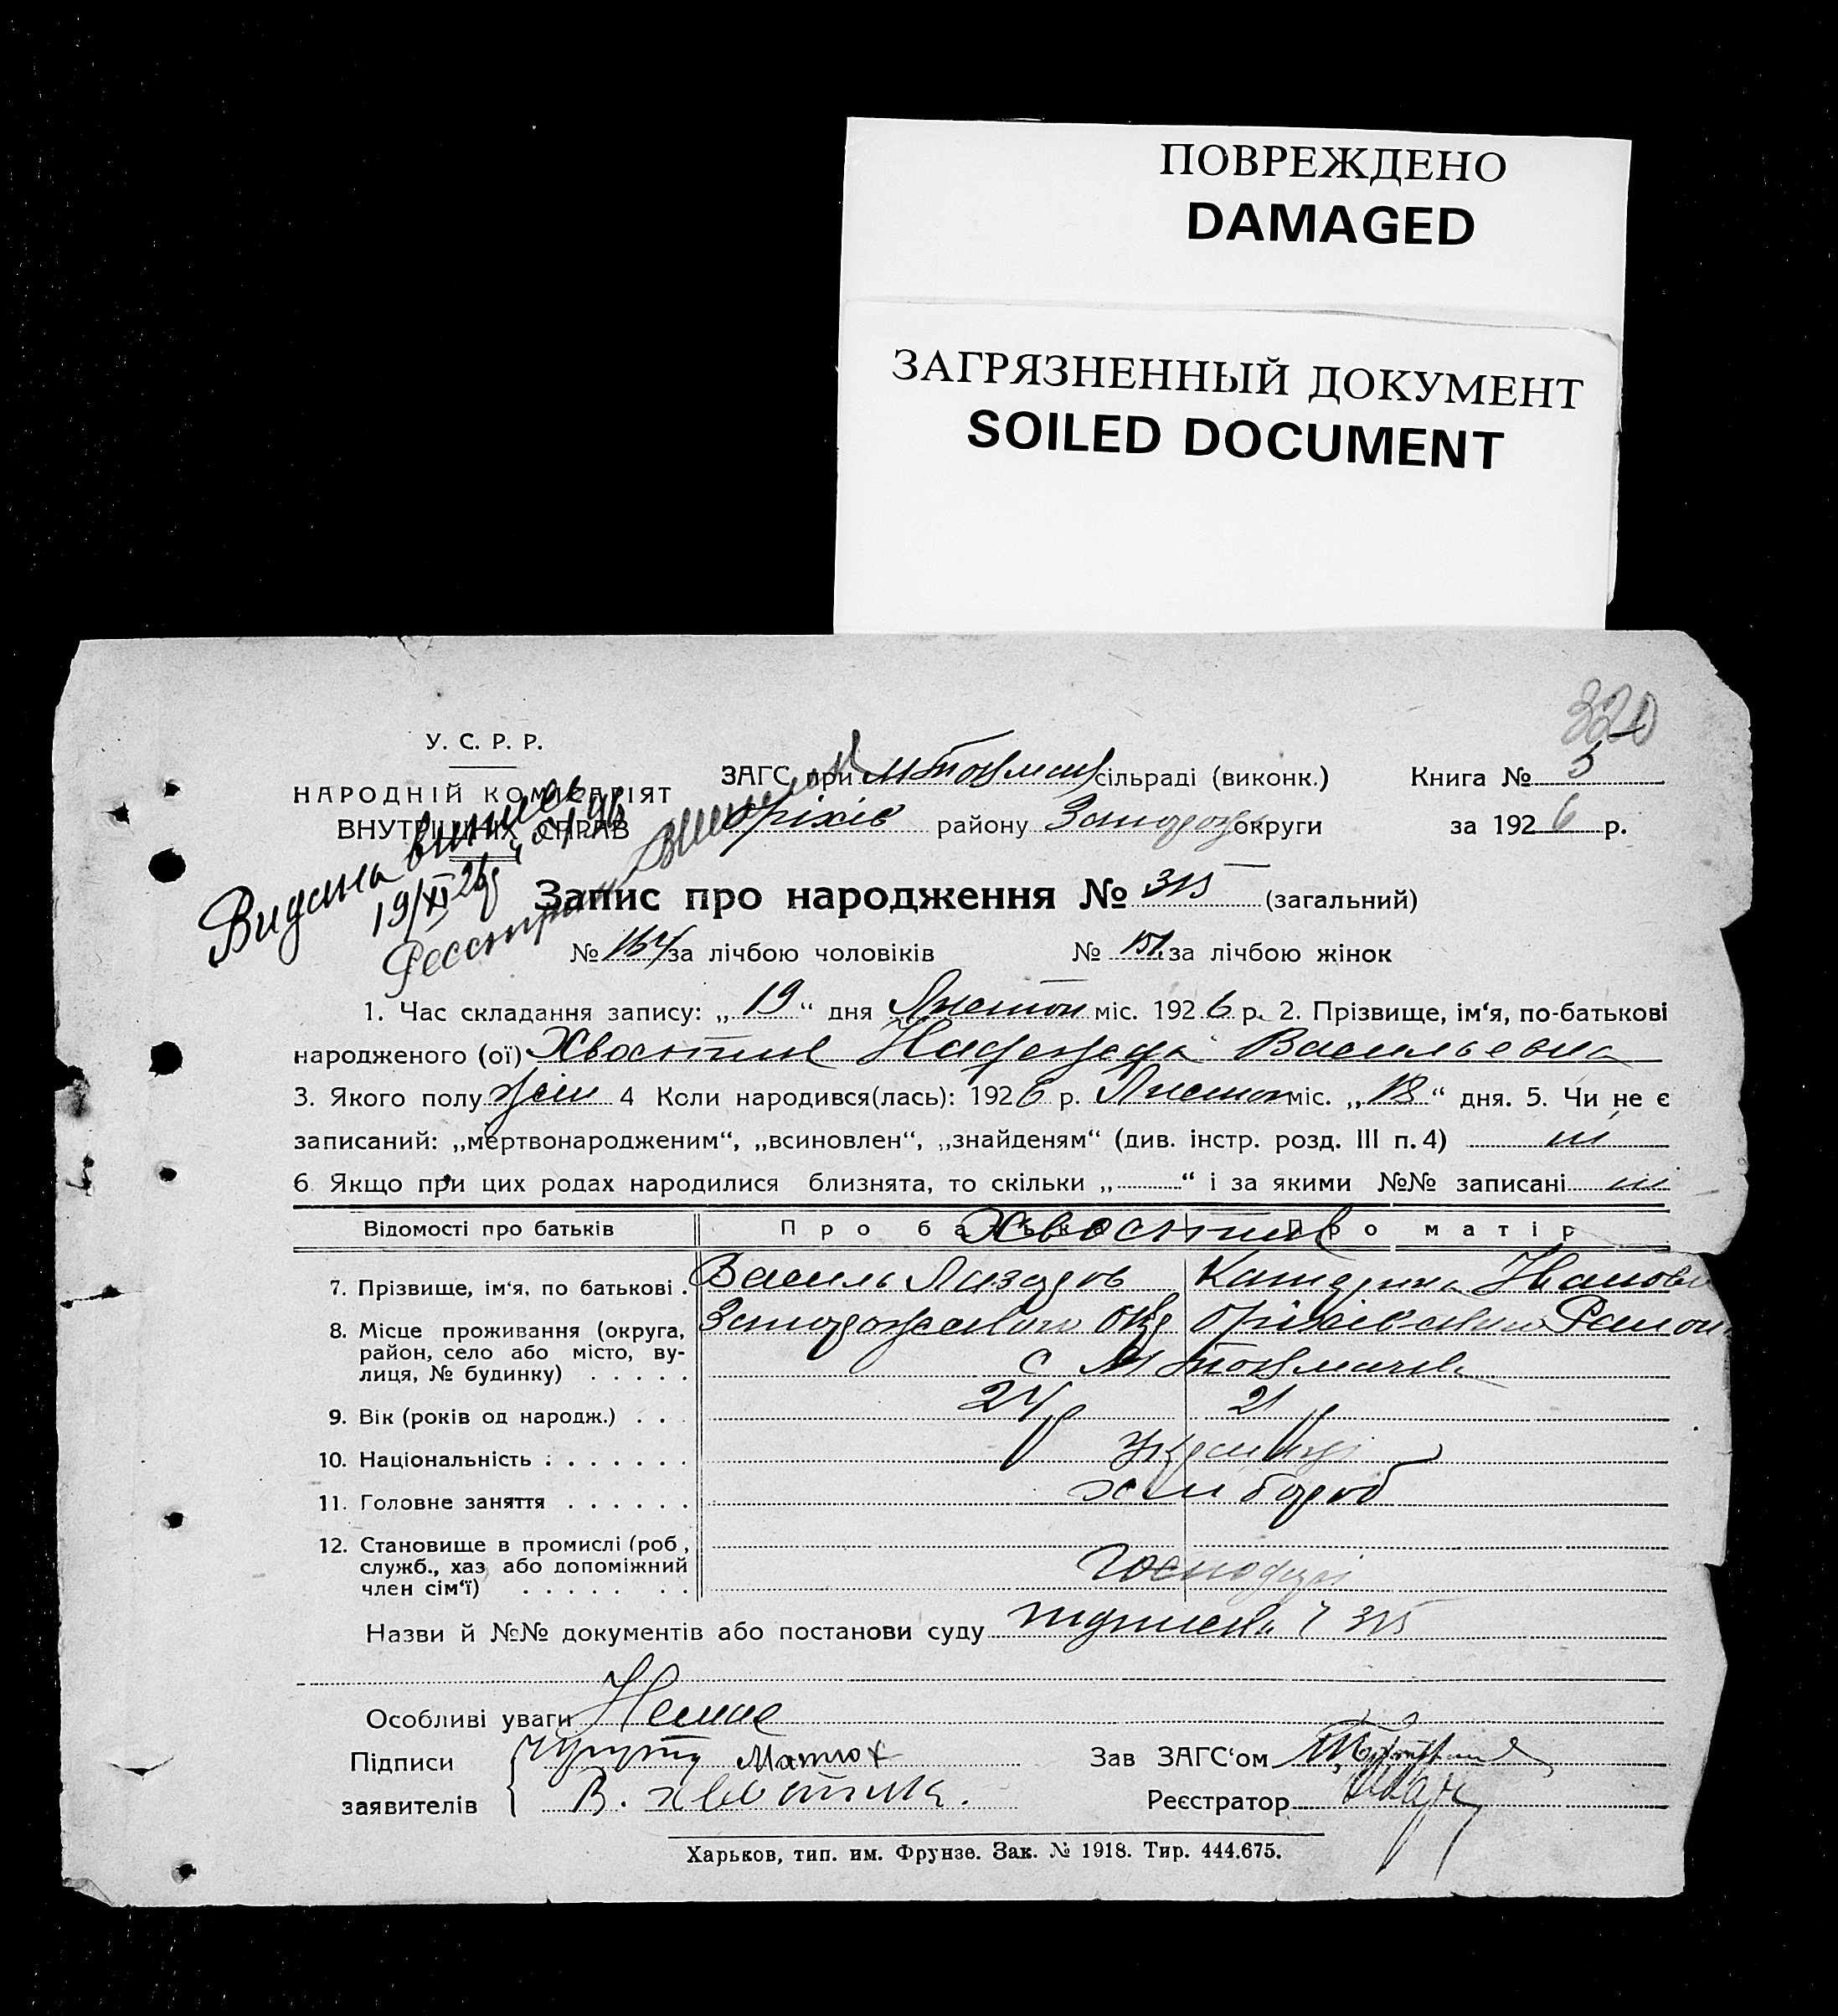 ПОВРЕЖДЕНО
DAMAGED
ЗАГРЯЗНЕННЫЙ ДОКУМЕНТ
SOILED DOCUMENT
320
У. С. Р. Р.
НАРОДНІЙ КОМІСАРІЯТ
ВНУТРІШНІХ СПРАВ
ЗАГС при М Токмач сільраді (виконк.) Книга № 5
Оріхів району Запорож округи за 1926 р.
Видана
19/XI 26р
Запис про народження № 315 (загальний)
№ 164 за лічбою чоловіків № 151 за лічбою жінок
1. Час складання запису: „19“ дня Листоп міс. 1926 р. 2. Прізвище, ім‘я, по-батькові
народженого (ої) Хвостик Надежда Васильевна
3. Якого полу жін 4 Коли народився(лась): 1926 р. Листоп міс. „18“ дня. 5. Чи не є
записаний: „мертвонародженим“, „всиновлен“, „знайденям“ (див. інстр. розд. III п. 4) ні
6 Якщо при цих родах народилися близнята, то скільки „ “ і за якими №№ записані ні
Відомості про батьків Про батька Про матір
Хвостик
7. Прізвище, ім‘я, по батькові . Василь Лазаров Катерина Ивановн
8. Місце проживання (округа, Запорожського окр Оріхівського Район
район, село або місто, ву-
лиця, № будинку) . . . . . с М Токмачка
9. Вік (років од народж.) . . 24 р 21 р
10. Національність . . . . . . . Українці
11. Головне заняття . . . . . . хлібороб
12. Становище в промислі (роб,
служб., хаз або допоміжний
член сім‘ї) . . . . . . . Господарі
Назви й №№ документів або постанови суду 315
Особливі уваги Немає
Підписи Матюх Зав ЗАГС‘ом
заявителів В. Хвостик. Реєстратор
Харьков, тип. им. Фрунзе. Зак. № 1918. Тир. 444.675.